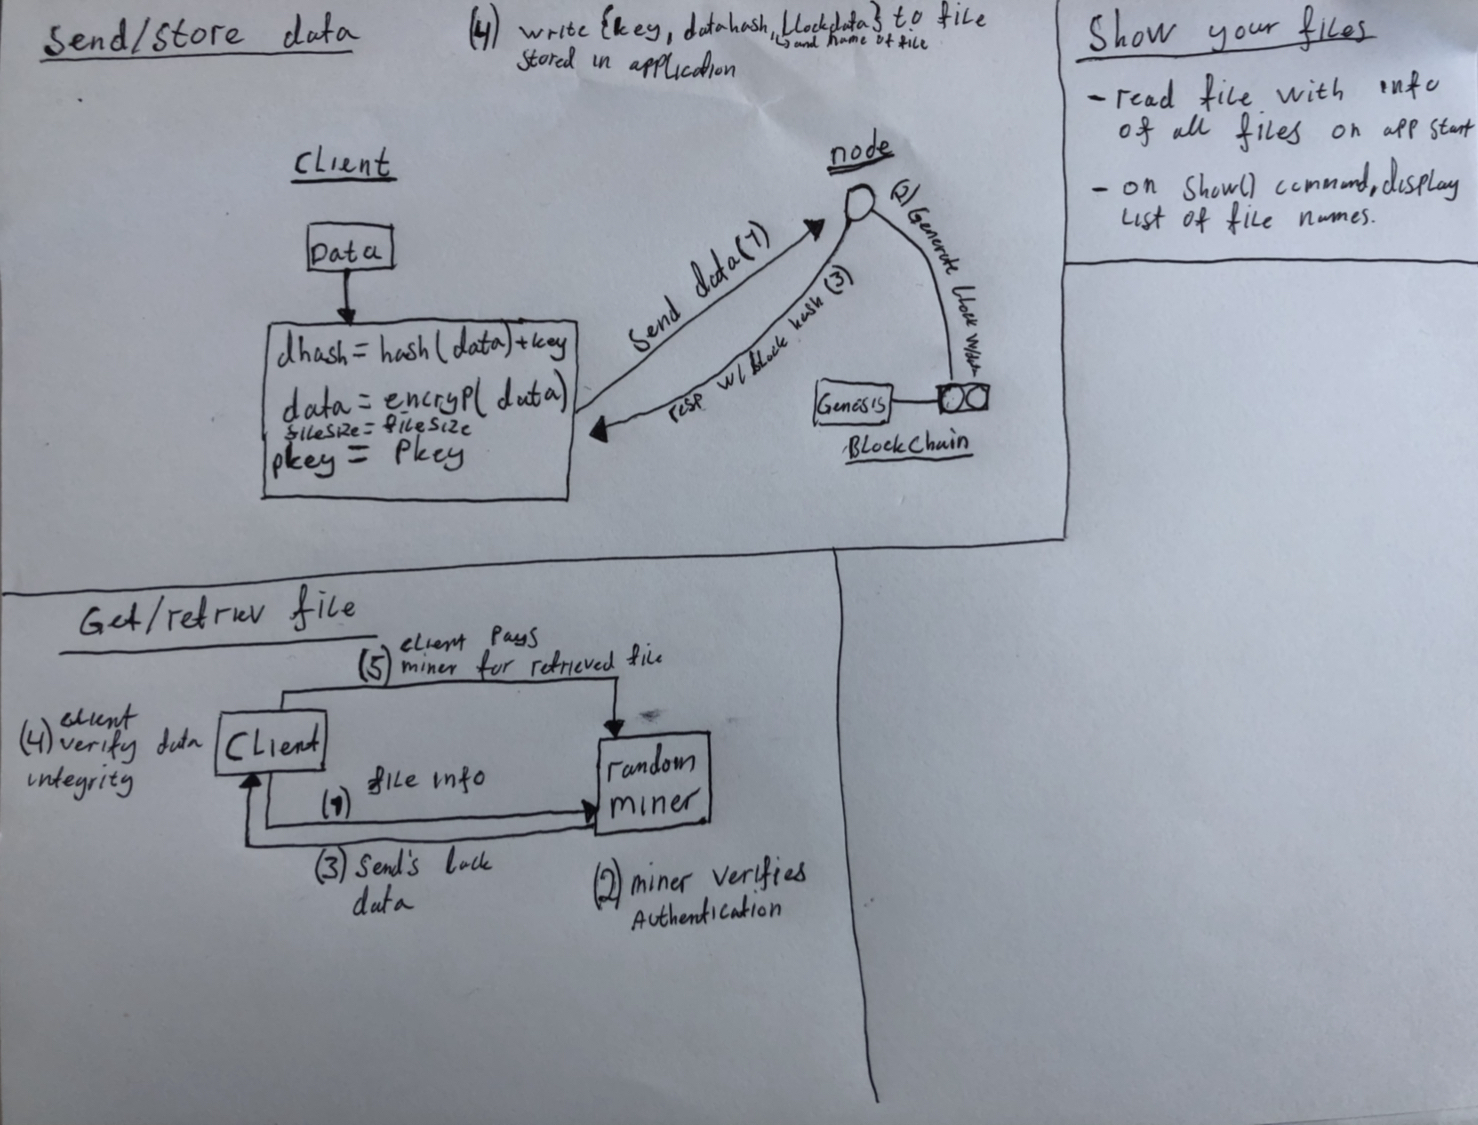 Send/Store data
(4) write {key, datahash, blockdata} to file
↳ and name of file
stored in application
Client
Data
dhash = hash(data)+key
data = encryp( data)
fileSize = fileSize
pkey = Pkey
Send data (1)
resp w/ Block hash (3)
node
(2) Generate block w/data
Genesis
BlockChain
Show your files
- read file with info
of all files on app start
- on Show() command, display
List of file names.
Get/retriev file
(5) client Pays
miner for retrieved file
(4) client
verify data
integrity
Client
(1) file info
random
miner
(3) Send's back
data
(2) miner verifies
Authentication